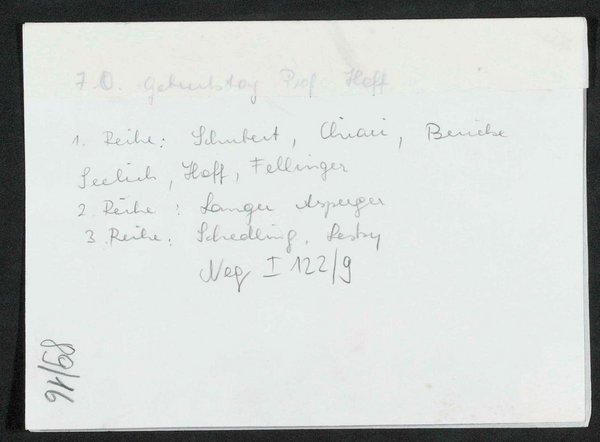 70. Geburtstag Prof. Hoff
1. Reihe: Schubert, Chiari, Benicke
Seelich, Hoff, Fellinger
2. Reihe: Langer Asperger
3. Reihe: Schedling,
Neg I 122/9
89/16